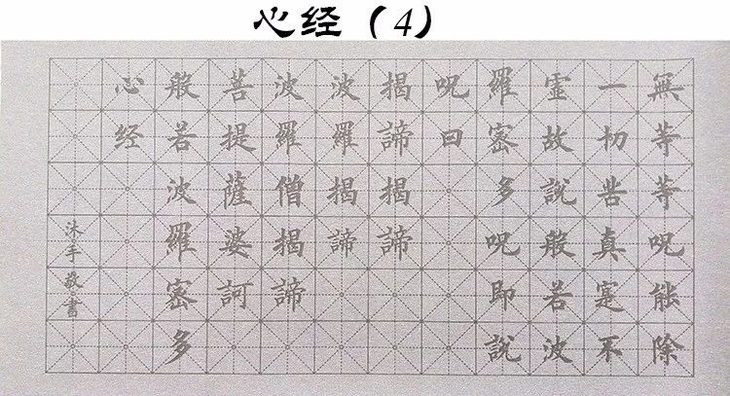 心经（4）
無等等呪能除
一切苦真寔不
虛故說般若波
羅密多呪即說
呪曰
揭諦揭諦
波羅揭諦
波羅僧揭諦
菩提薩婆訶
般若波羅密多
心经
沐手敬書